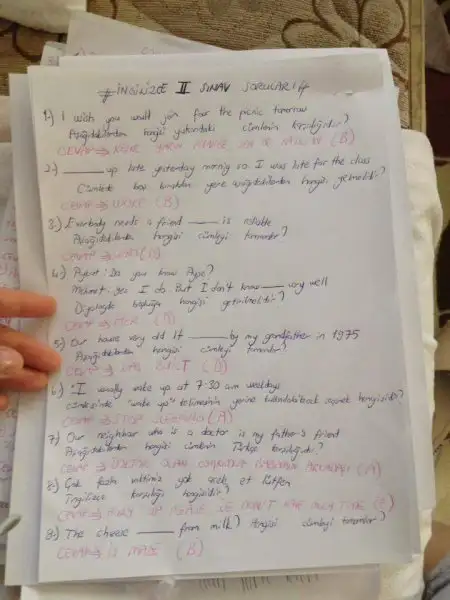 İNGİLİZCE II SINAV SORULARI
1-) I wish you would join for the picnic tomorrow
Aşağıdakilerden hangi yukarıdaki cümlenin karşılığıdır?
CEVAP ⇒ KEŞKE YARIN PİKNİĞE (B)
2-) ____ up late yesterday mornig so I was late for the class
Cümlede boş bırakılan yere aşağıdakilerden hangisi gelmelidir?
CEVAP ⇒ WOKE (B)
3-) Everbody needs a friend ____ is reliable
Aşağıdakilerden hangisi cümleyi tamamlar?
CEVAP ⇒ (B)
4-) : Do you know Ayşe?
Mehmet: yes I do. But I don't know ____ very well
Diyalogda boşluğa hangisi getirilmelidir?
CEVAP ⇒ HER (A)
5-) Our house very old It ____ by my grandfather in 1975
Aşağıdakilerden hangisi cümleyi tamamlar?
CEVAP ⇒ WAS BUILT (B)
6-) "I usually wake up at 7:30 am weekdays
cümlesinde "wake up" kelimesinin yerine kullanılabilecek seçenek hangisidir?
CEVAP ⇒ STOP SLEEPING (A)
7-) Our neighbour who is a doctor is my father's friend
Aşağıdakilerden hangisi cümlenin Türkçe karşılığıdır?
CEVAP ⇒ DOCTOR OLAN KOMŞUMUZ BABAMIN ARKADAŞI (A)
8-) Çok fazla vaktimiz yok acele et lütfen
İngilizce karşılığı hangisidir?
CEVAP ⇒ HURRY UP PLEASE WE DON'T HAVE MUCH TIME (E)
9-) The cheese ____ from milk? Hangisi cümleyi tamamlar?
CEVAP ⇒ IS MADE (B)